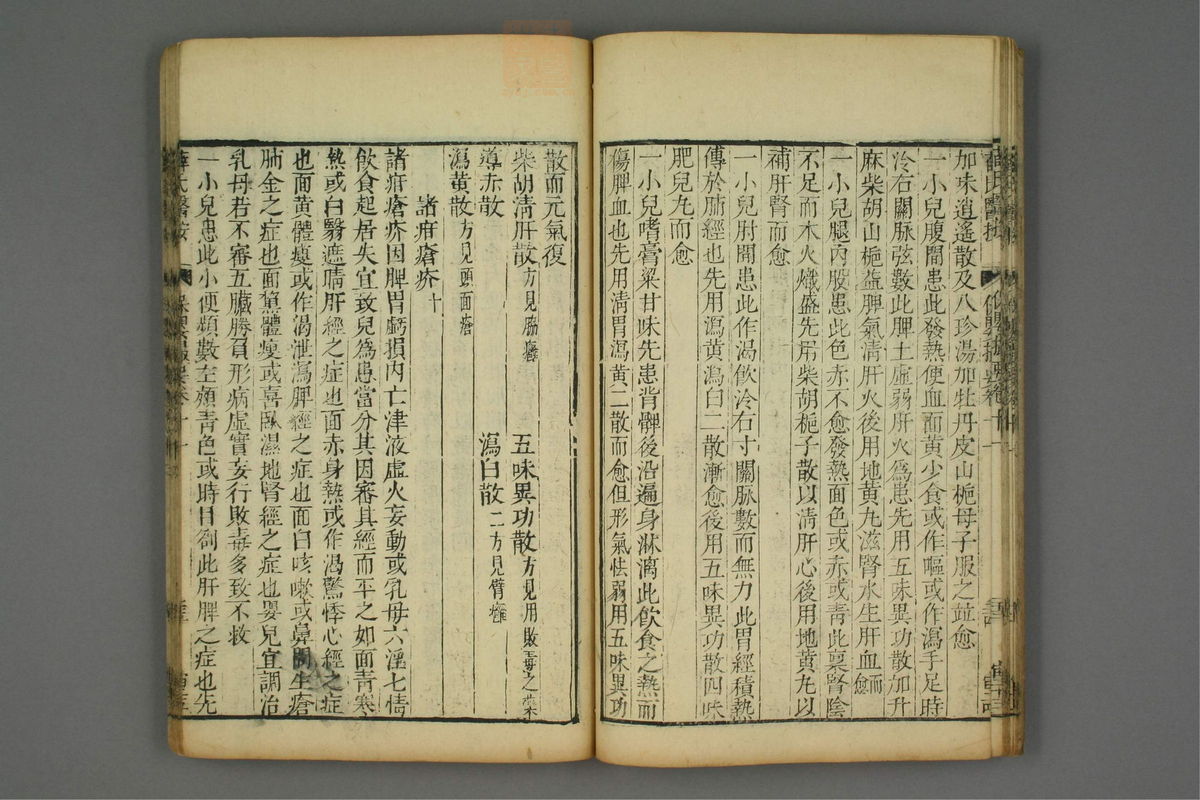 加味逍遙散及八珍湯加牡丹皮山梔母子服之竝愈
一小兒腹間患此發熱便血面黄少食或作嘔或作瀉手足時
冷右關脉弦數此脾土虛弱肝火爲患先用五味異功散加升
麻柴胡山梔益脾氣清肝火後用地黄丸滋腎水生肝血而愈
一小兒腿內股患此色赤不愈發熱面色或赤或青此禀腎陰
不足而木火熾盛先用柴胡梔子散以清肝心後用地黄丸以
補肝腎而愈
一小兒肘間患此作渴飲冷右寸關脉數而無力此胃經積熱
傳於肺經也先用瀉黄瀉白二散漸愈後用五味異功散四味
肥兒丸而愈
一小兒嗜膏粱甘味先患背髀後沿遍身淋漓此飲食之熱而
傷脾血也先用清胃瀉黄二散而愈但形氣怯弱用五味異功
散而元氣復
柴胡清肝散方見腦癰 五味異功散方見用敗毒之藥
導赤散 瀉白散二方見臂癰
瀉黄散方見頭面瘡
諸疳瘡疥十
諸疳瘡疥因脾胃虧損內亡津液虛火妄動或乳母六淫七情
飲食起居失宜致兒爲患當分其因審其經而平之如面青寒
熱或白翳遮睛肝經之症也面赤身熱或作渴驚悸心經之症
也面黄體瘦或作渴泄瀉脾經之症也面白咳嗽或鼻間生瘡
肺金之症也面黧體瘦或喜臥濕地腎經之症也嬰兒宜調治
乳母若不審五臟勝負形病虛實妄行敗毒多致不救
一小兒患此小便頻數左頰青色或時目劄此肝脾之症也先
薛氏醫按